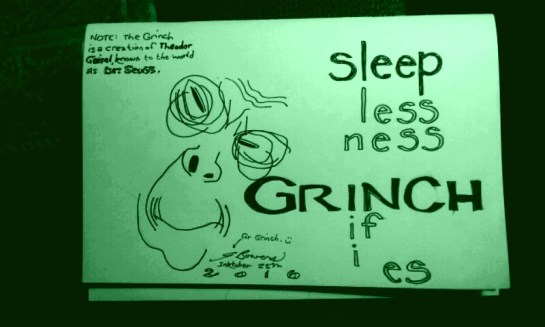 NOTE: The Grinch
is a creation of Theodor
Geisel, known to the world
as Dr. Seuss.
sleep
less
ness
GRINCH
if
i
es
for Grinch. :)
Inktober 25th
2016